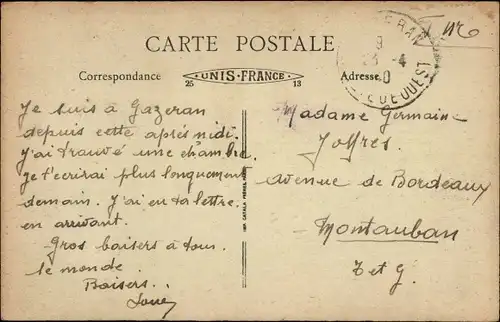 CARTE POSTALE
Correspondance
UNIS-FRANCE
25
13
Adresse
Je suis à Gazeran
depuis cette après midi.
J'ai trouvé une chambre.
Je t'ecrirai plus longuement
demain. J'ai eu ta lettre
en arrivant.
Gros baisers à tous
le monde.
Baisers..
Madame Germaine
Joffres.
Avenue de Bordeaux
Montauban
T et G.